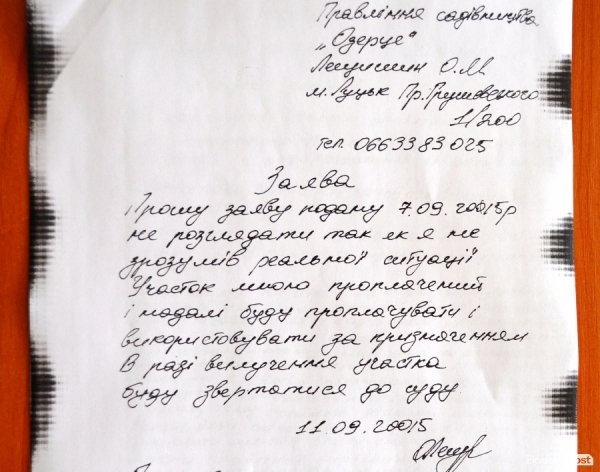 Правління садівництва
„Озерце"
Лещишин О.М
м. Луцьк Пр. Грушевського
11/200
тел. 0663383025
Заява
Прошу заяву подану 7.09.20015р
не розглядати так як я не
зрозумів реальної ситуації
Участок мною проплачений
і надалі буду проплачувати і
використовувати за призначенням
В разі вилучення участка
буду звертатися до суду.
11.09.20015